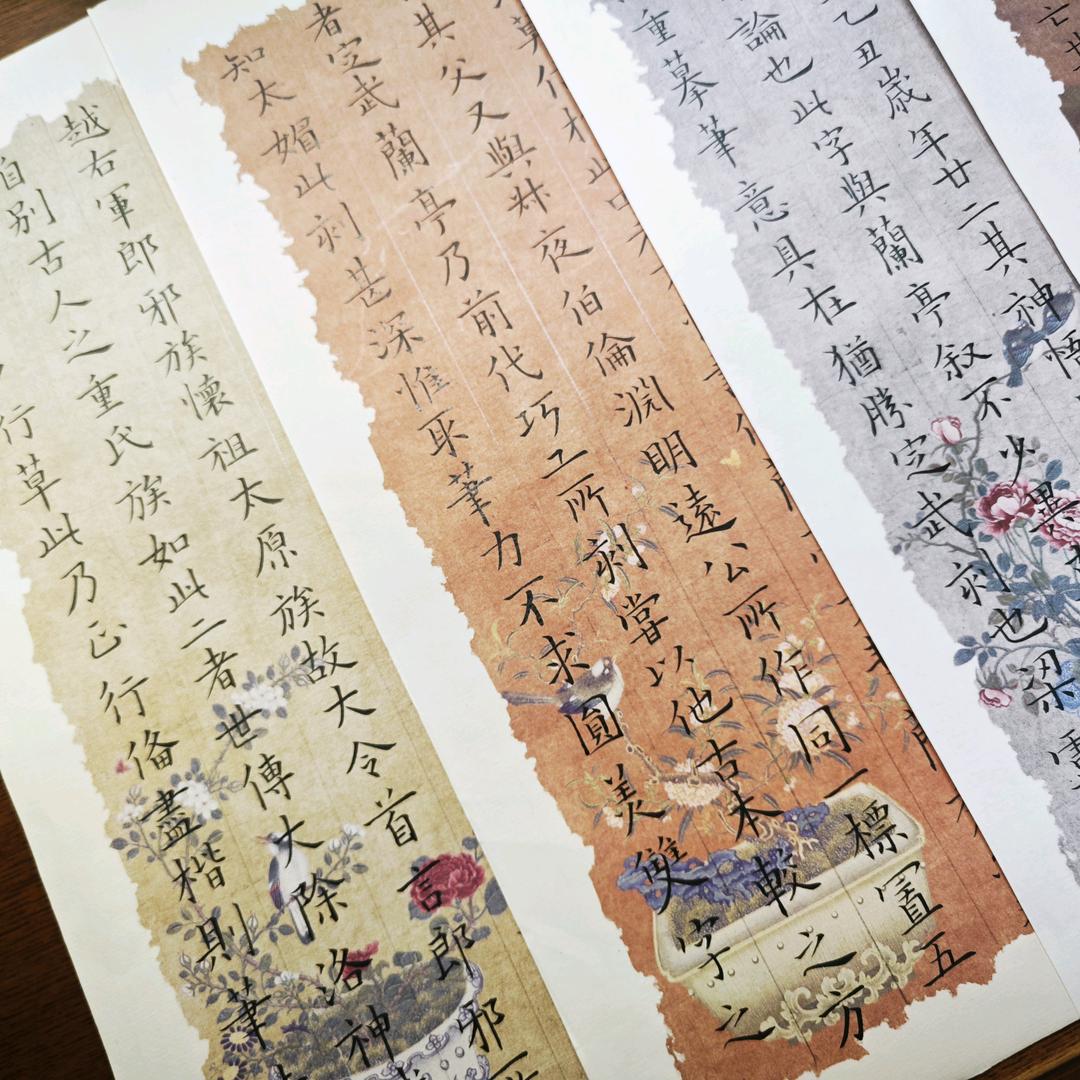 乙丑歲年廿二其神悟
論也此字與蘭亭叙不少異
重摹筆意具在猶勝定武刻也梁
其父又與叔夜伯倫淵明遠公所作同一標置五
者定武蘭亭乃前代巧工所刻嘗以他古本較之方
知太媚此刻甚深惟取筆力不求圓美雙字之
越右軍郎邪族懷祖太原族故大令首言郎邪
自別古人之重氏族如此二者世傳大除洛神
行草此乃正行俻盡楷則筆